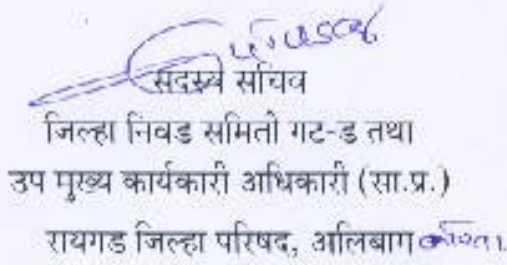 सदस्य सचिव
जिल्हा निवड समिती गट-ड तथा
उप मुख्य कार्यकारी अधिकारी (सा.प्र.)
रायगड जिल्हा परिषद, अलिबाग